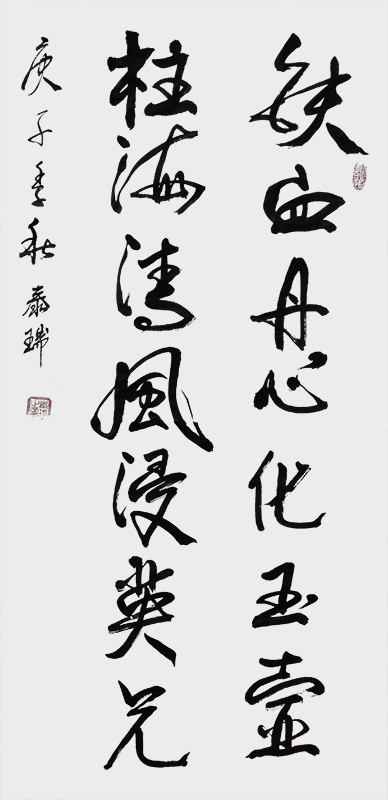 鉄血丹心化玉壺
柱海清風浸英兄
庚子季秋 瑞